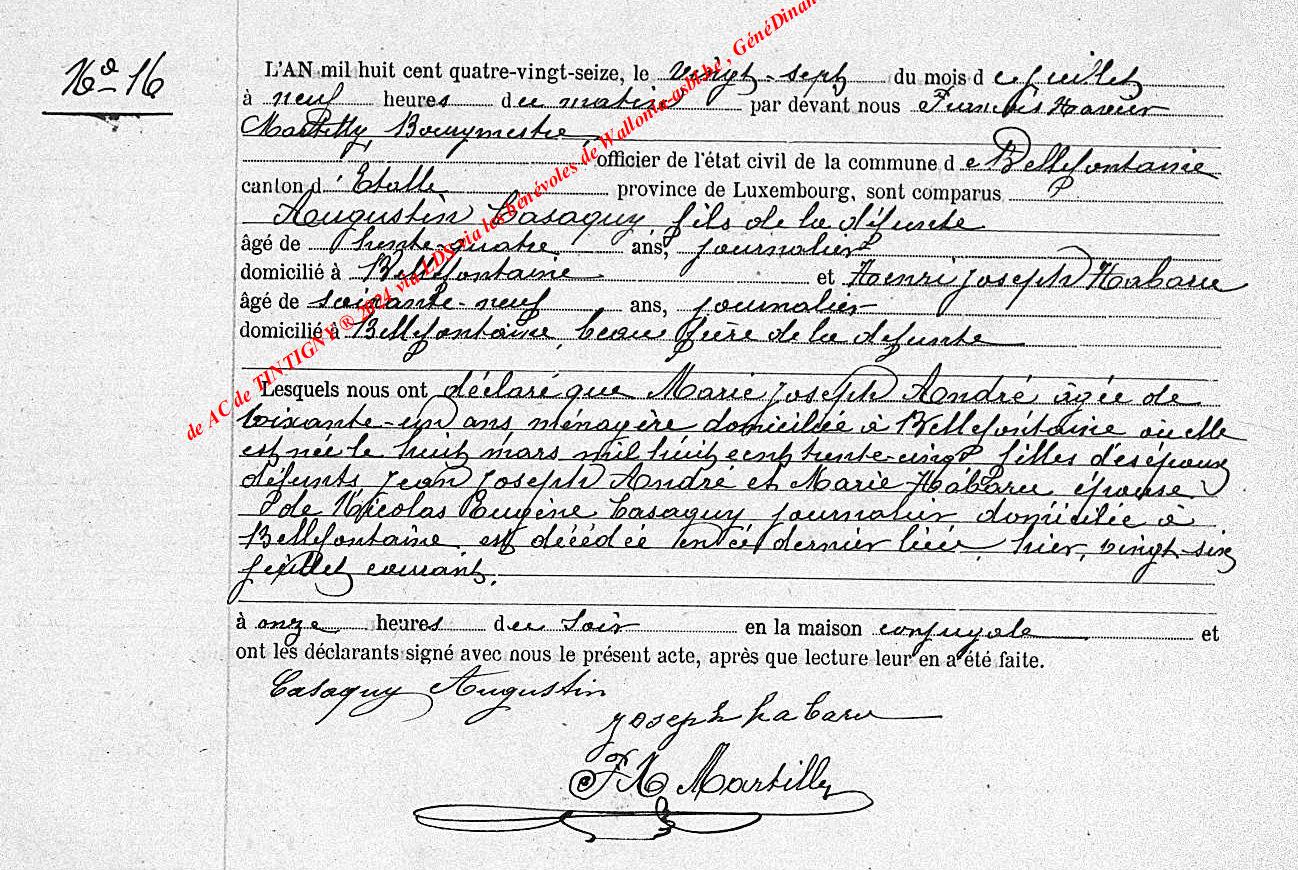 No 16
L'AN mil huit cent quatre-vingt-seize, le vingt-sept du mois de juillet
à neuf heures du matin par devant nous François Xavier
Martilly, Bourgmestre
officier de l'état civil de la commune de Bellefontaine
canton d'Etalle province de Luxembourg, sont comparus
Augustin Casaquy, fils de la défunte
âgé de trente-quatre ans, journalier
domicilié à Bellefontaine et Henri Joseph Habaru
âgé de soixante-neuf ans, journalier
domicilié à Bellefontaine, beau frère de la defunte
Lesquels nous ont déclaré que Marie Joseph André âgée de
soixante-un ans ménagère domiciliée à Bellefontaine où elle
est née le huit mars mil huit cent trente-cinq filles des époux
défunts Jean Joseph André et Marie Habaru épouse
de Nicolas Eugène Casaquy journalier domiciliée à
Bellefontaine est décédée en ce dernier lieu, hier, vingt-six
juillet courant.
à onze heures du soir en la maison conjugale et
ont les déclarants signé avec nous le présent acte, après que lecture leur en a été faite.
Casaquy Augustin
Joseph habaru
F X Martilly
de AC de TINTIGNY ® 2024 via LDS via les bénévoles de Wallonia-asbl.be , GénéDinan